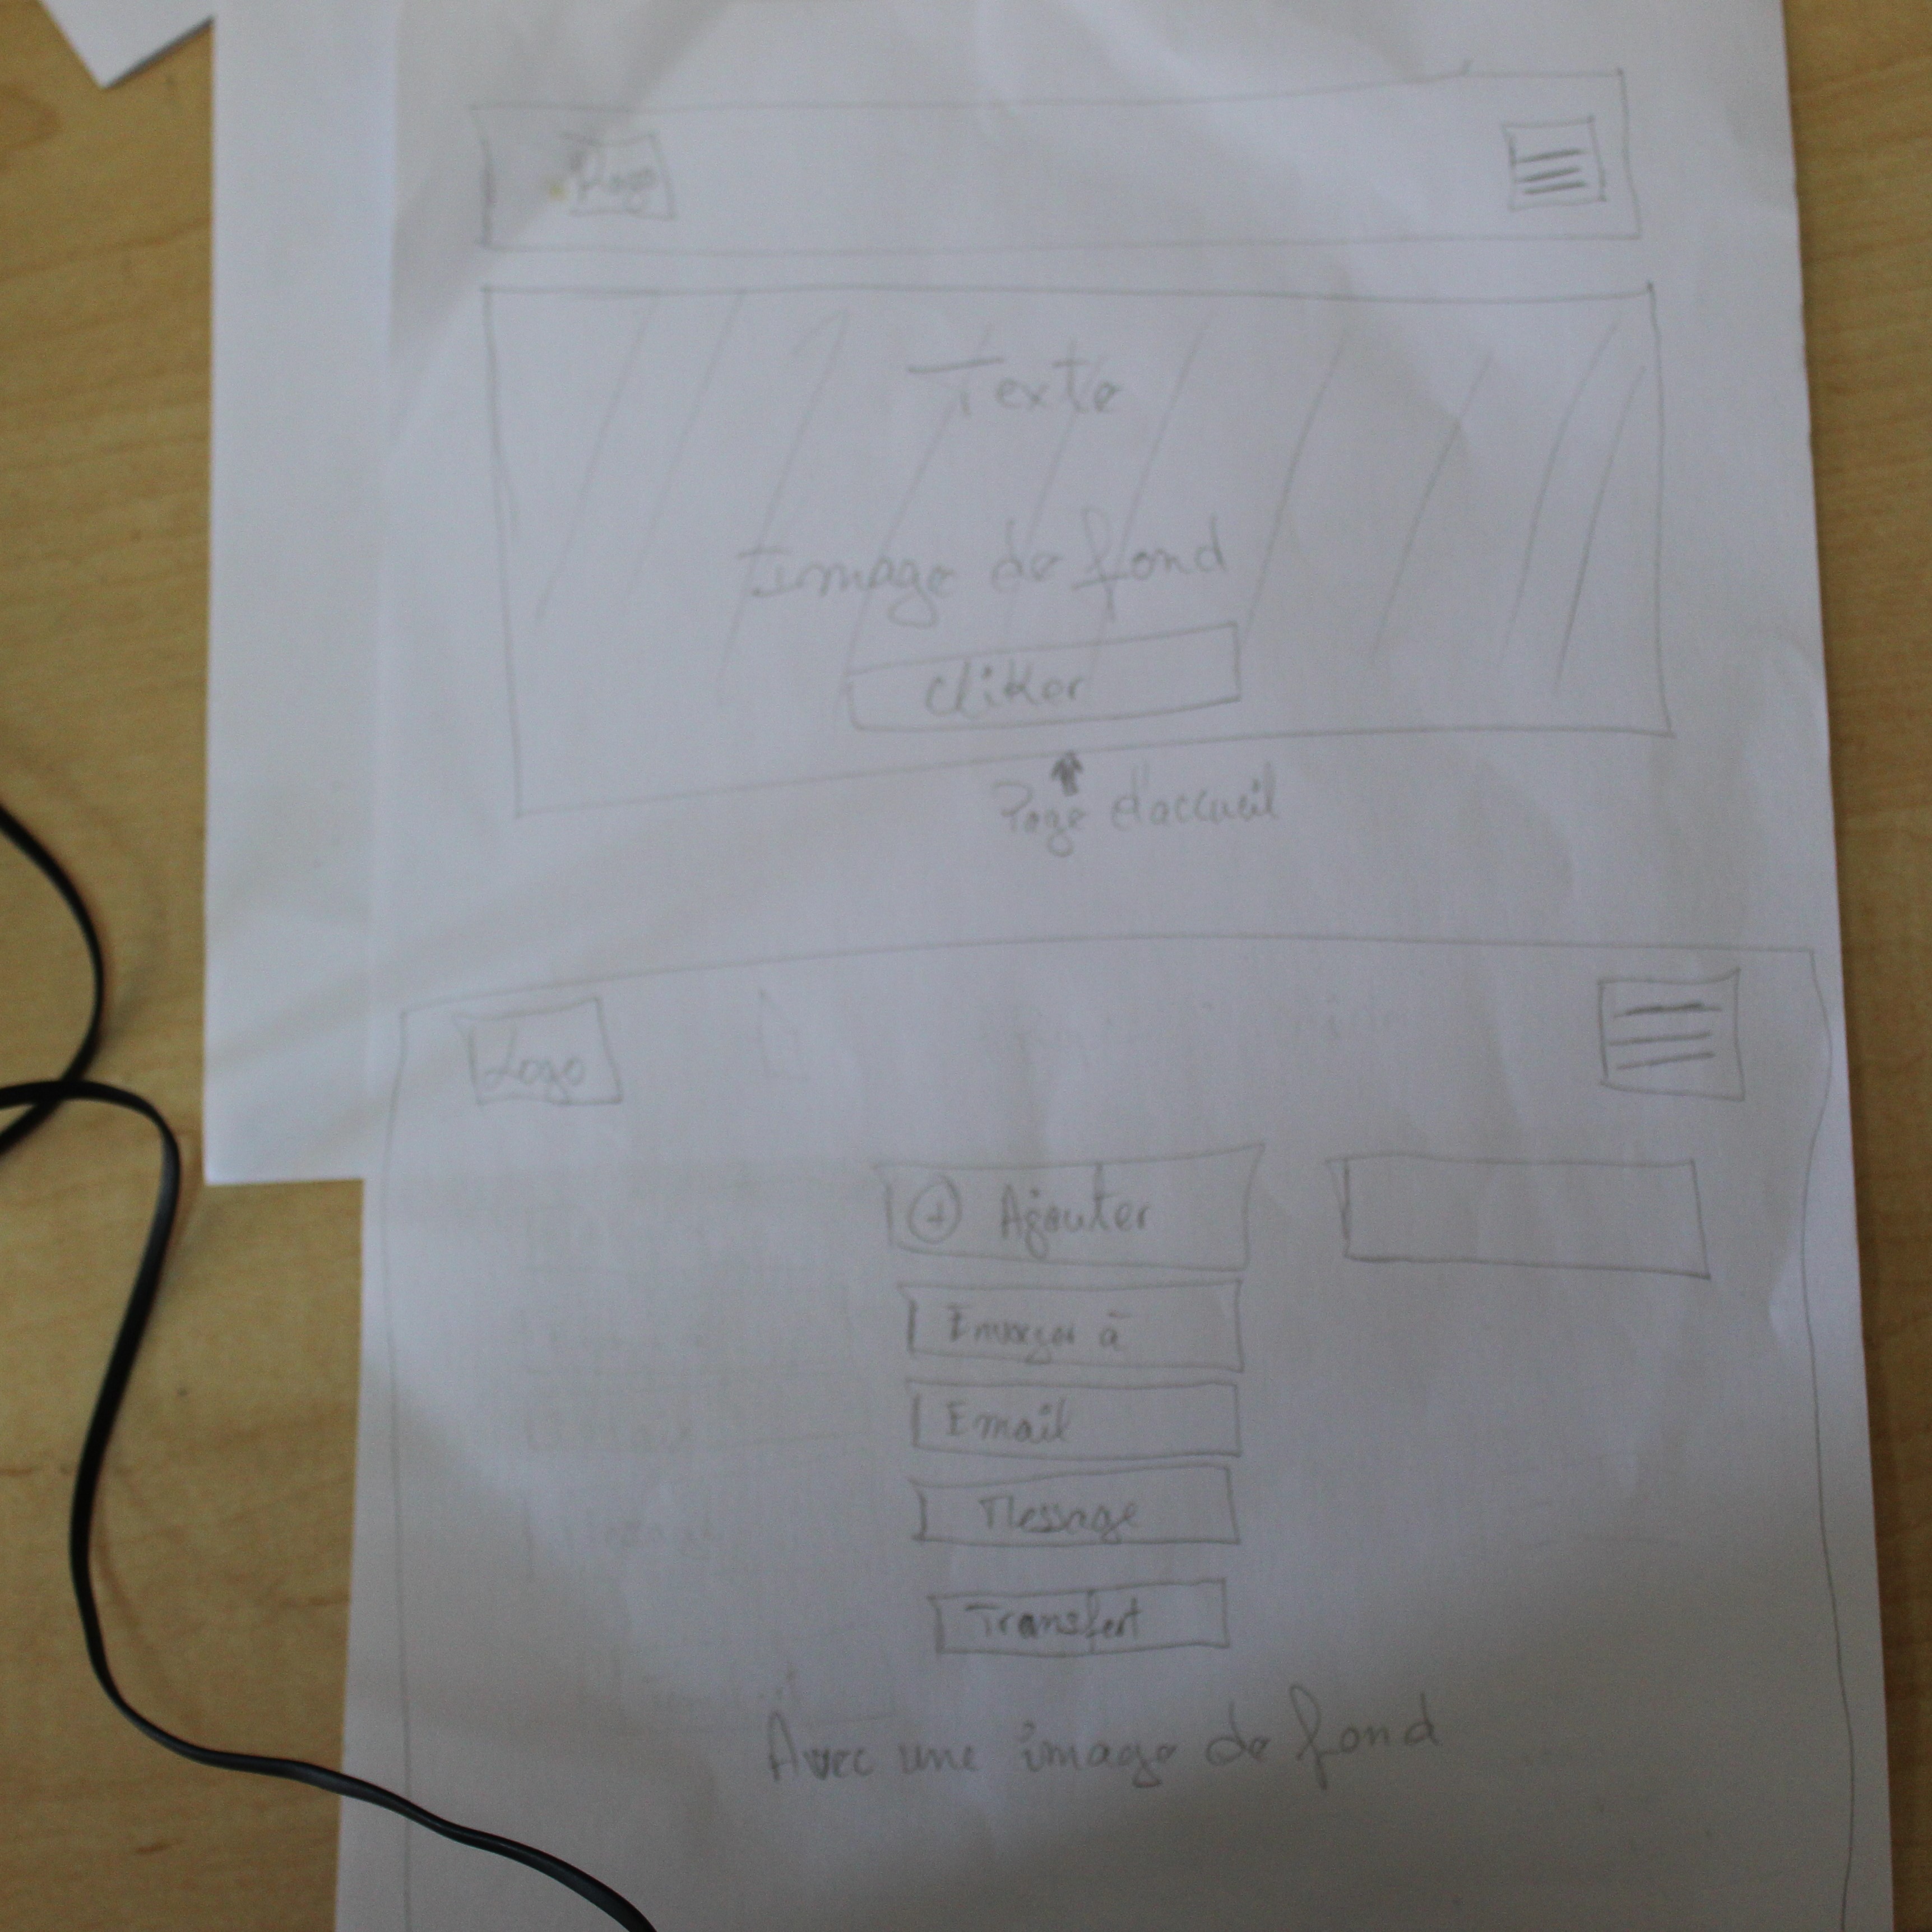 Logo
Texte
Image de fond
Cliker
Page d'accueil
Logo
+ Ajouter
Envoyer à
Email
Message
Transfert
Avec une image de fond